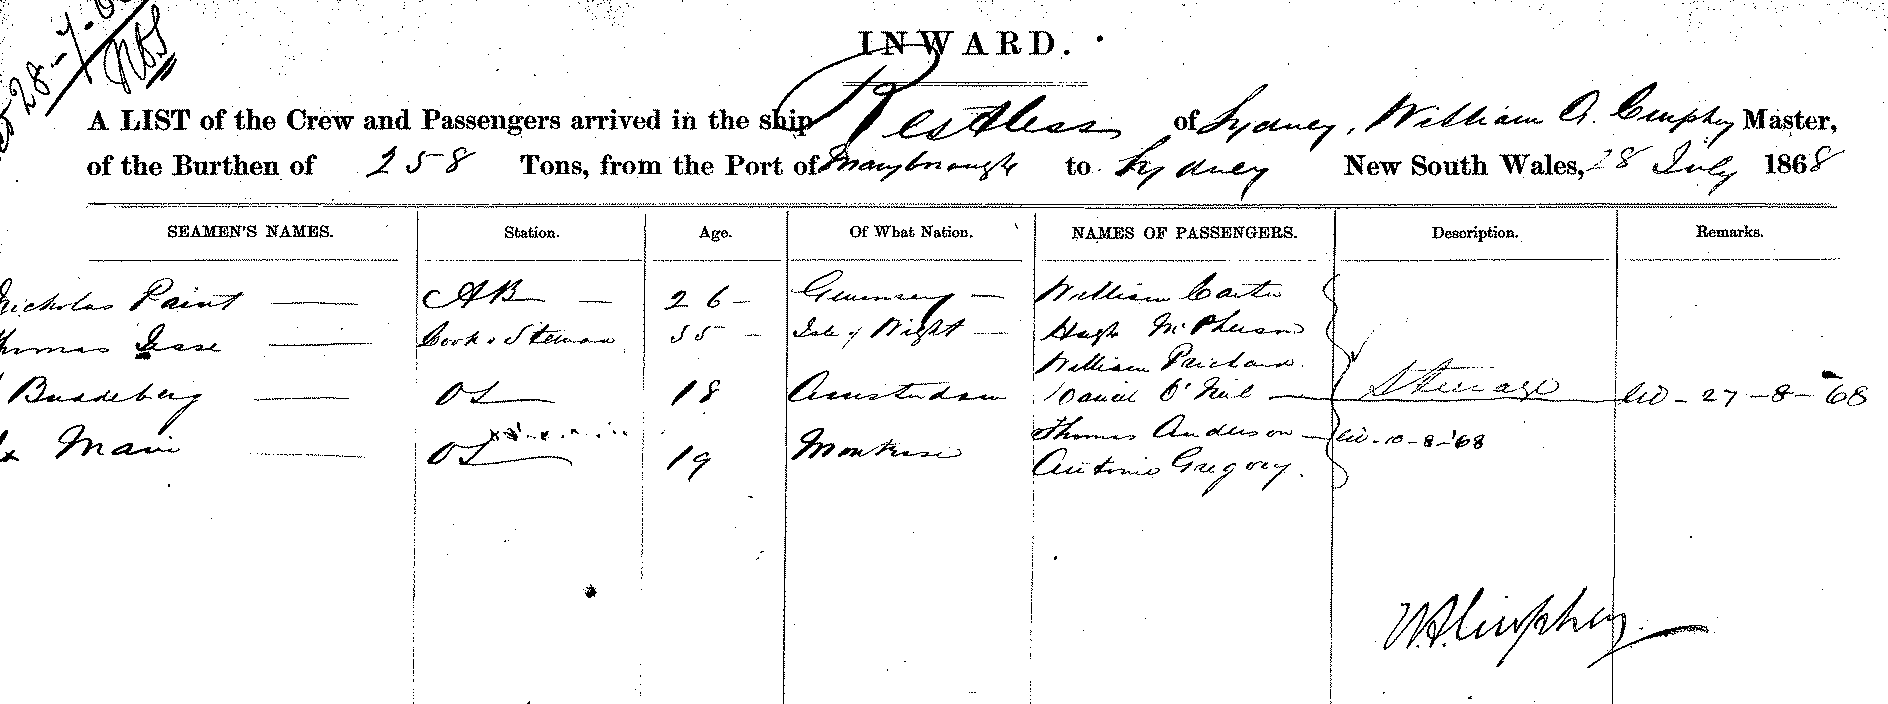 28-7-
INWARD.
A LIST of the Crew and Passengers arrived in the ship Restless of Sydney, William A. Master,
of the Burthen of 258 Tons, from the Port of Maryborough to Sydney New South Wales, 28 July 1868
SEAMEN'S NAMES. Station. Age. Of What Nation. NAMES OF PASSENGERS. Description. Remarks.
Nicholas Paint AB 26 Guernsey William Carter
Thomas Jesse Cook & Steward 55 Isle of Wight Hugh McPherson
William Prichard
Buddeberg OS 18 Amsterdam David O'Neil Steerage 27-8-68
Thomas Anderson 10-8-'68
Main OS 19 Montrose
Antonio Gregory.